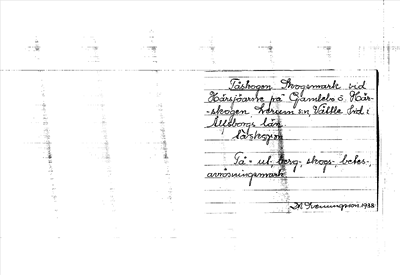 Tåskogen Skogsmark vid
Härsjöarne på Gamlebo i Här-
-skogen Lerum sn, Vättle hd i
Älfsborgs län.
tåskogen
Tå = ut, berg, skogs-, betes-,
avrösningsmark
1938